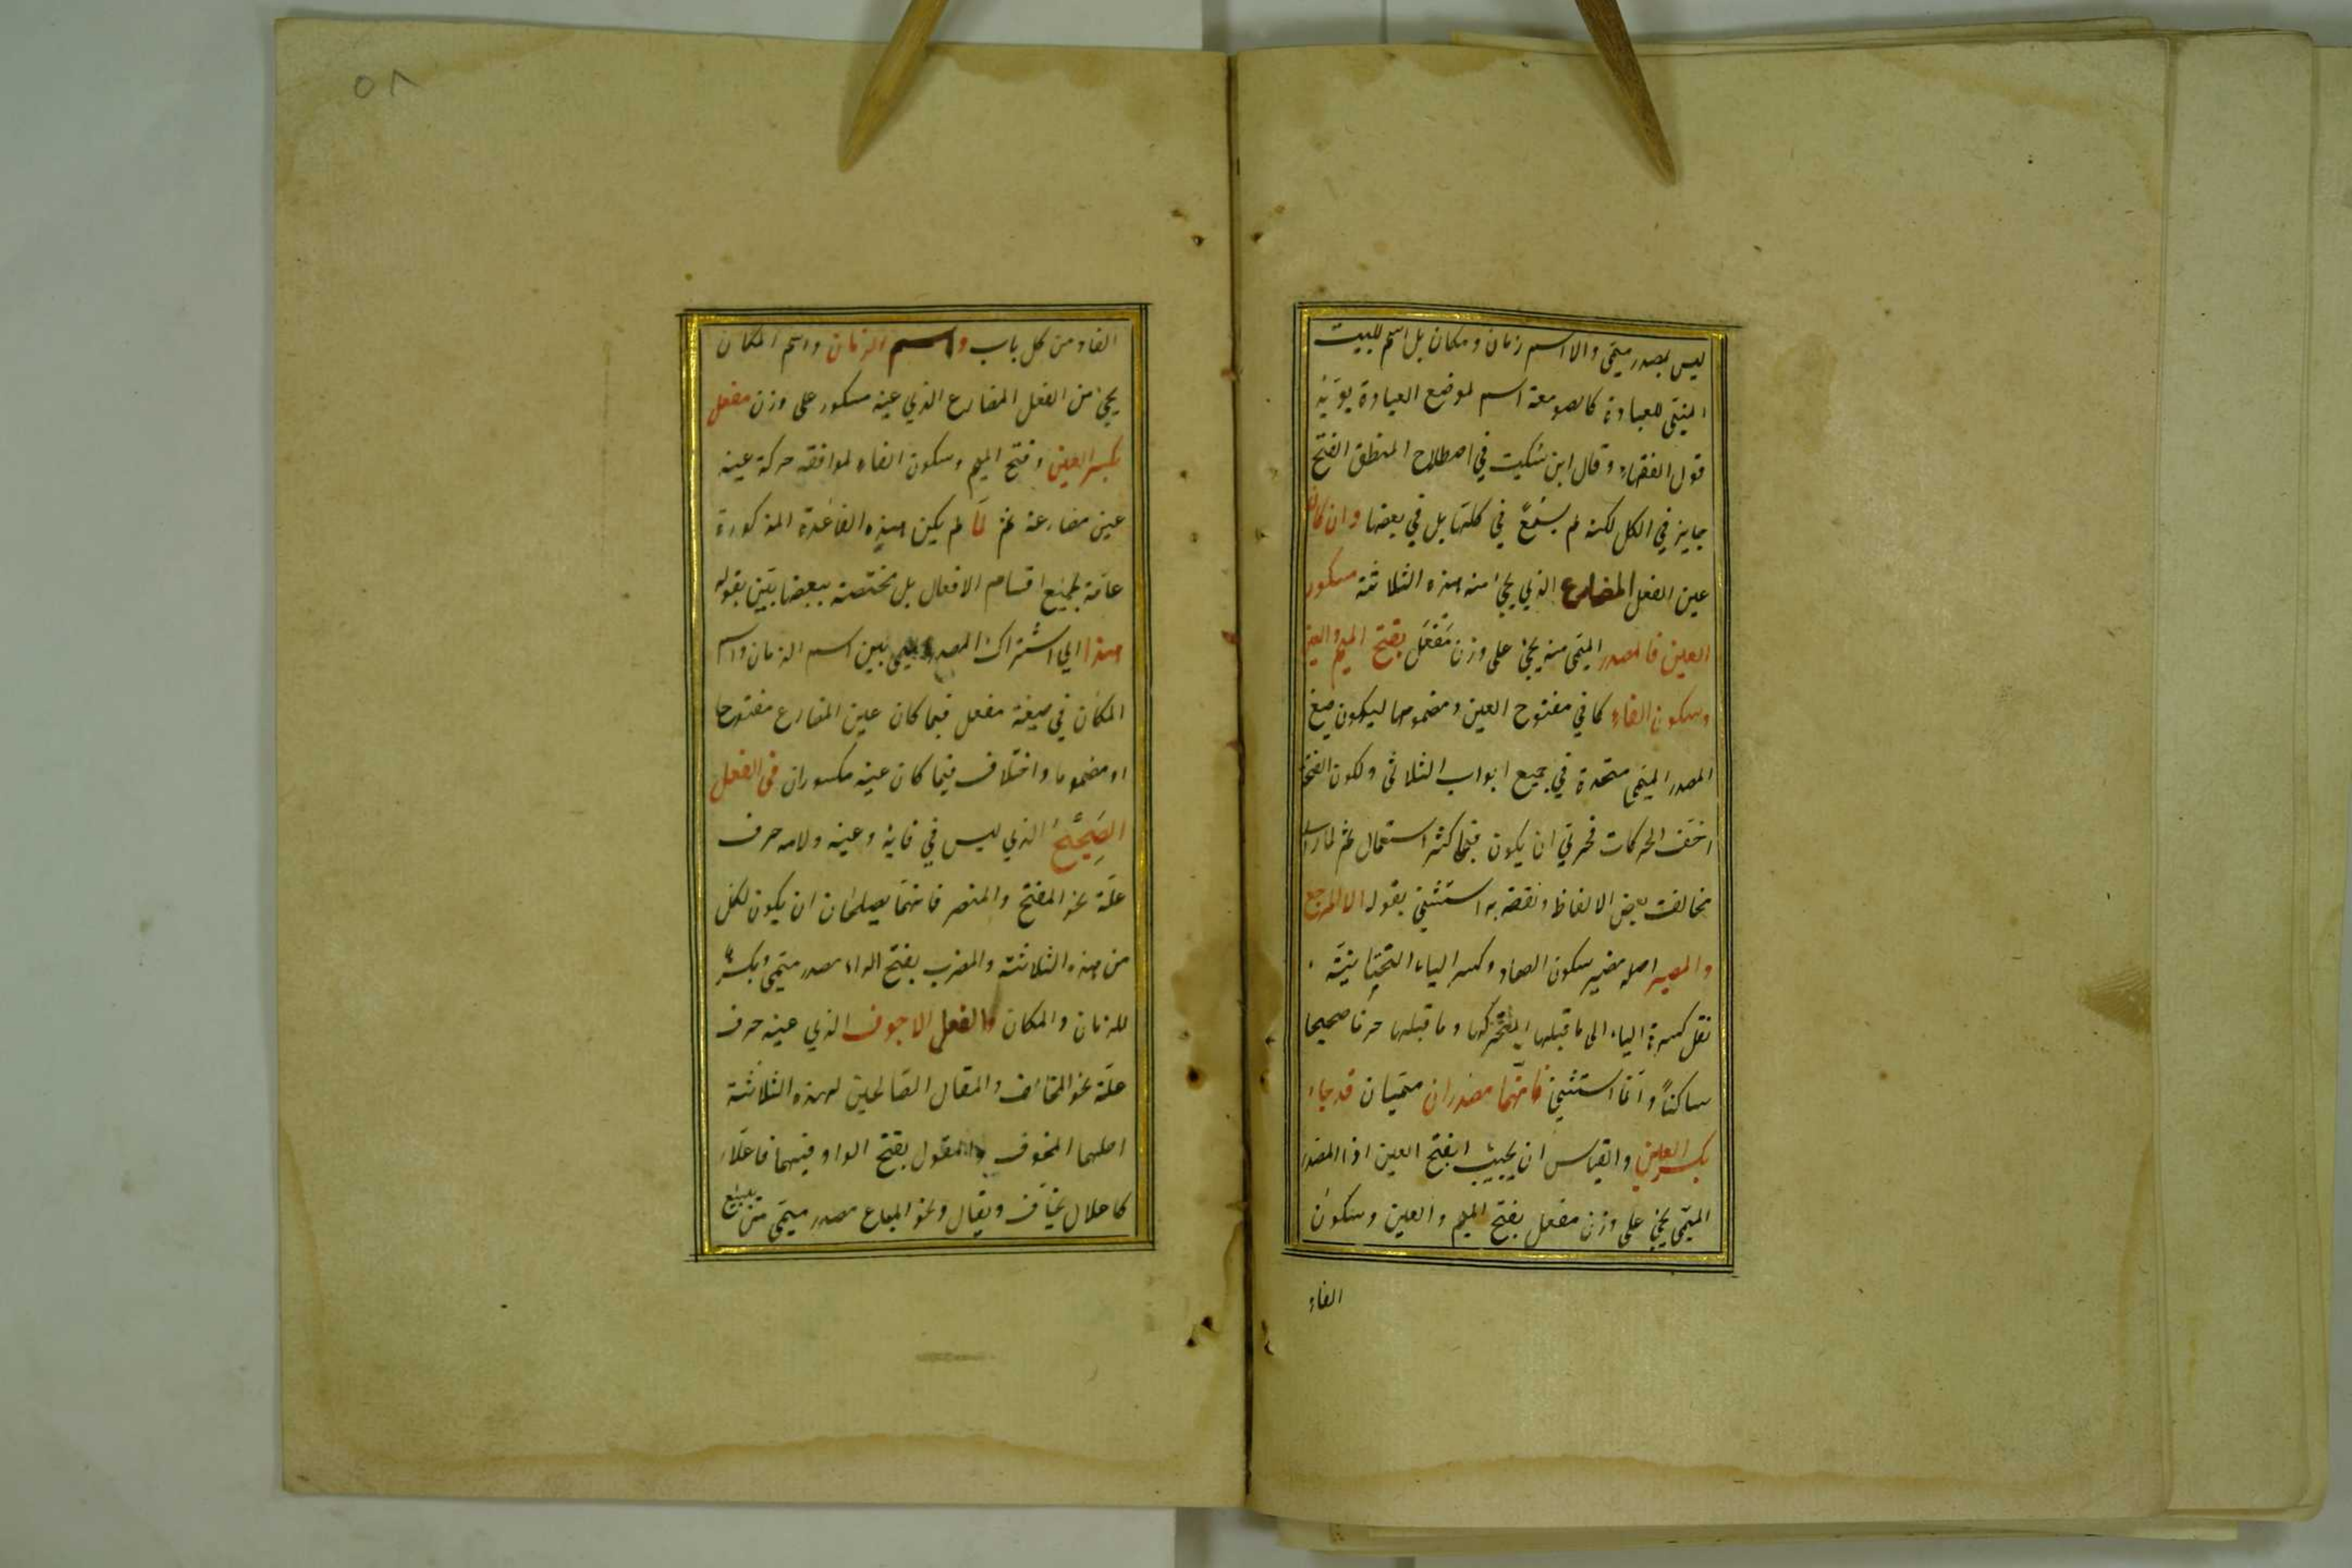 ليس بمصدر ميمى والا اسم زمان ومكان بل اسم للبيت
المبنى للعبادة كالصومعة اسم لموضع العبادة يؤيده
قول الفقهاء وقال ابن سكيت في اصطلاح المنطق الفتح
جايز في الكل لكنه لم يسمع في كلها بل في بعضها وان كان
عين الفعل المضارع الذي يجئ منه هذه الثلاثة مكسور
العين فالمصدر الميمى منه يجئ على وزن مَفعَل بفتح الميم والعين
وسكون الفاء كما في مفتوح العين ومضمومها ليكون صيغ
المصدر الميمى متحدة في جميع ابواب الثلاثى ولكون الفتحة
اخف الحركات فحرتى ان يكون فيما كثر استعمال ثم لما راى
مخالفت بعض الالفاظ ونقضه به استثنى بقوله الا المرجع
والمصير اصله مصير بسكون الصاد وكسر الياء التحتانية
نقل كسرة الياء الى ما قبلها لتحركها وما قبلها حرفا صحيحا
ساكنا وانما استثنى فانهما مصدران ميميان قد جاء
بكسر العين والقياس ان يجيئ بفتح العين اذا المصدر
الميمى يجئ على وزن مفعل بفتح الميم والعين وسكون
الفاء
٥٨
الفاء من كل باب واسم الزمان واسم المكان
يجئ من الفعل المضارع الذي عينه مكسور على وزن مفعل
بكسر العين وفتح الميم وسكون الفاء لموافقة حركة عينه
عين مضارعه ثم لما لم يكن هذه القاعدة المذكورة
عامة لجميع اقسام الافعال بل مختصة ببعضها بين بقوله
هذا اي اشتراك المصدر الميمى بين اسم الزمان واسم
المكان في صيغة مفعل فيما كان عين المضارع مفتوحا
او مضموما واختلاف فيما كان عينه مكسوران في الفعل
الصَحِيْحُ الذي ليس في فايه وعينه ولامه حرف
علّة نحو المفتح والمنصر فانهما يصلحان ان يكون لكل
من هذه الثلاثة والمضرب بفتح الراء مصدر ميمى وبكسرها
للزمان والمكان والفعل الاجوف الذي عينه حرف
علّة نحو المخاف والمقال الصالحين لهذه الثلاثة
اصلهما المخوف والمقول بفتح الواو فيهما فاعلا
كاعلال يخاف ويقال ونحو المباع مصدر ميمى من يبيع